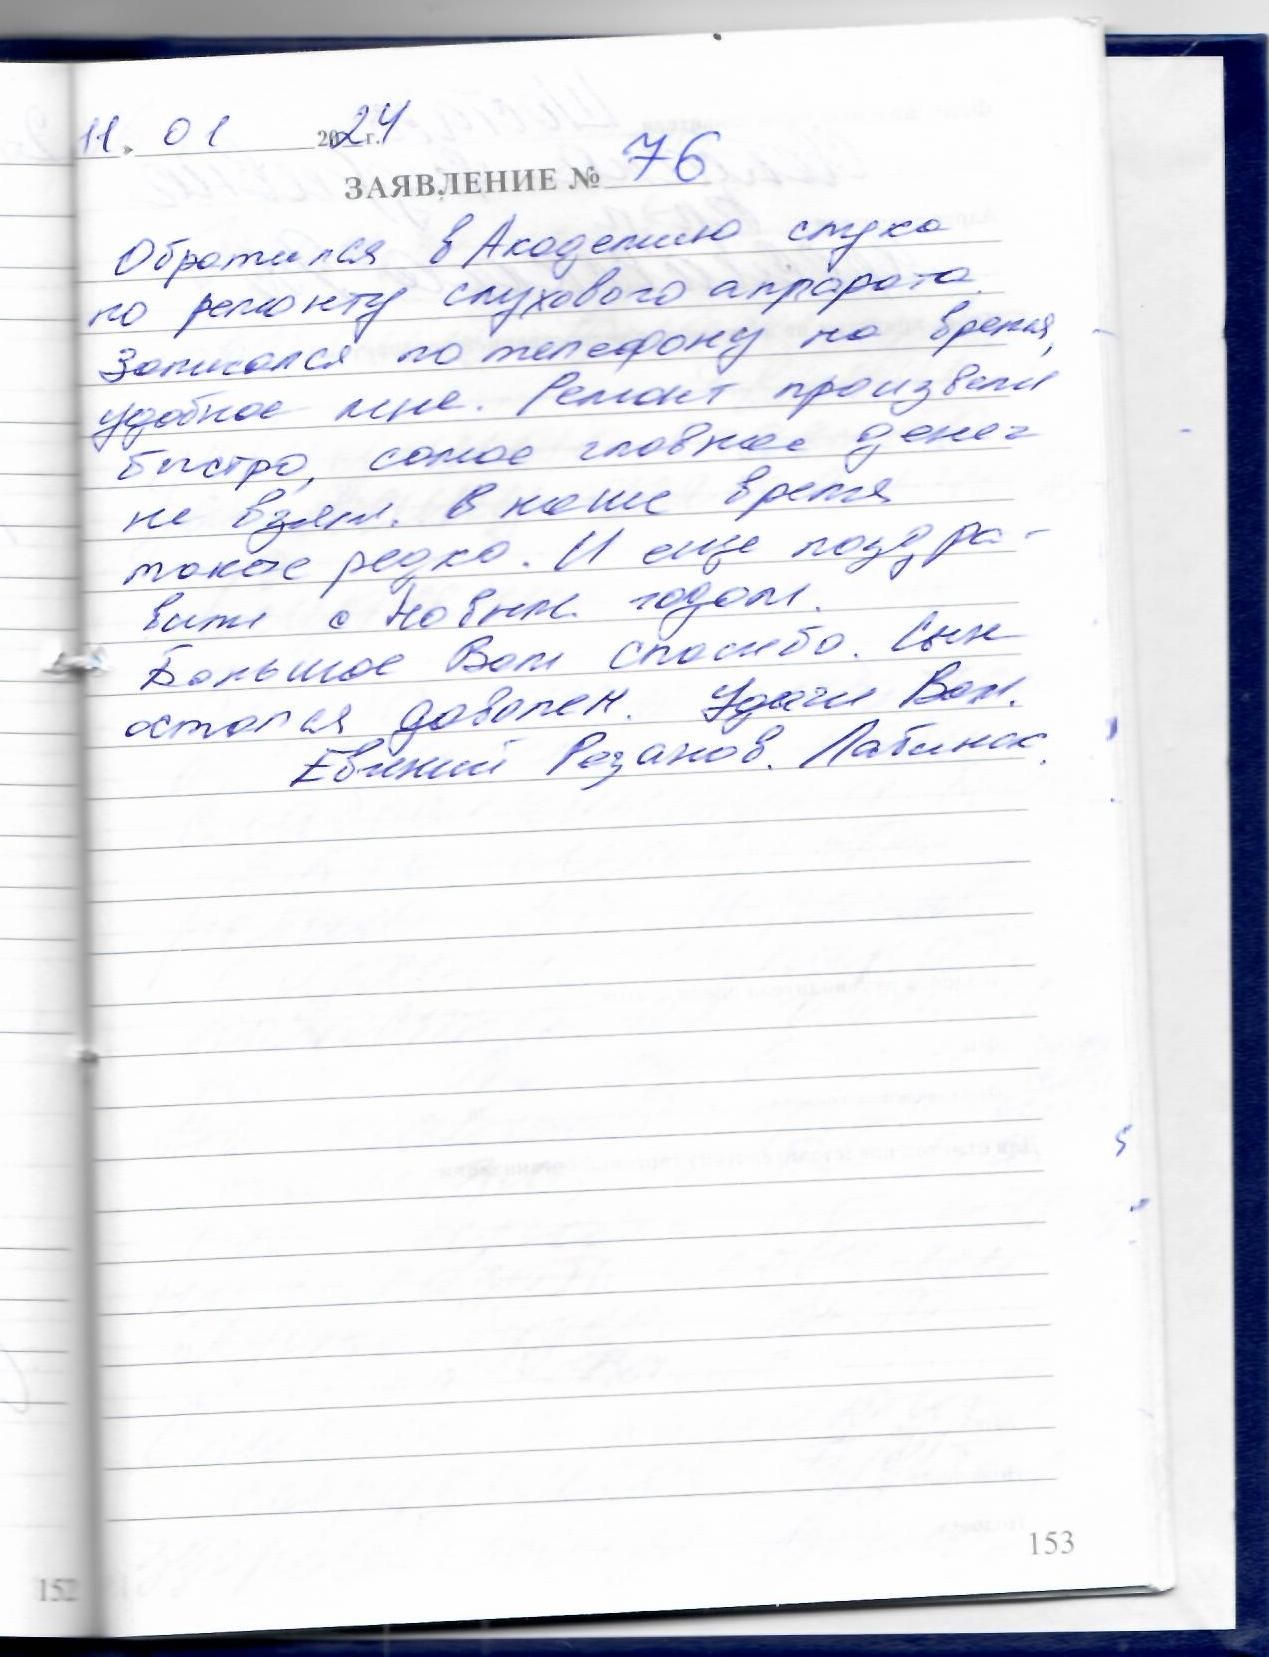 11. 01 2024 г.
ЗАЯВЛЕНИЕ № 76
Обратился в Академию слуха
по ремонту слухового аппарата.
Записался по телефону на время,
удобное мне. Ремонт произвели
быстро, самое главное денег
не взяли. В наше время
такое редко. И еще поздра-
вили с Новым годом.
Большое Вам спасибо. Сын
остался доволен. Удачи Вам.
Евгений Резанов. Лабинск.
153
152